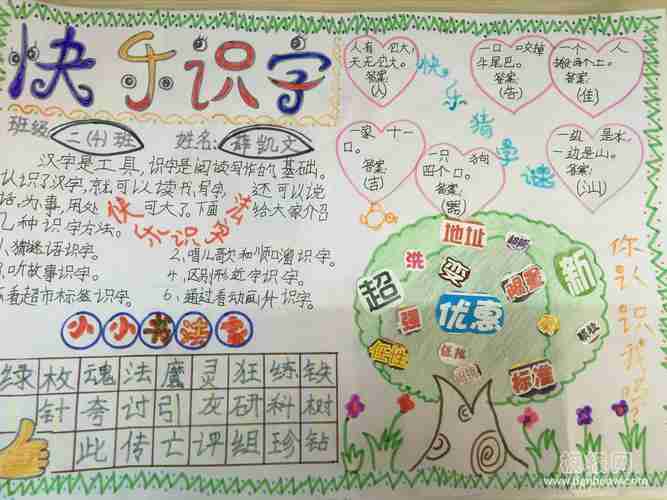 快乐识字
班级：二(4)班 姓名：薛凯文
汉字是工具，识字是阅读写作的基础。
认识了汉字，就可以读书，写字，还可以说
话，办事，用处可大了。下面给大家介绍
几种识字方法。
快乐识字法
1、猜谜语识字。 2、唱儿歌和顺口溜识字。
3、听故事识字。 4、区别形近字识字。
5、看超市标签识字。 6、通过看动画片识字。
小小书法家
绿 枚 魂 法 魔 灵 狂 练 铁
针 夸 讨 引 灰 研 科 树
此 传 亡 评 组 珍 钻
快乐猜字谜
人有它大，
天无它大。
答案：
(人)
一口咬掉
牛尾巴。
答案：
(告)
一个人
搬两个土。
答案：
(佳)
一家十一
口。
答案：
(吉)
一只狗
四个口。
答案：
(器)
一边是水，
一边是山。
答案：
(汕)
地址
超能
洗
买
明星
新
超
强
优惠
个性
标准
你认识我吗